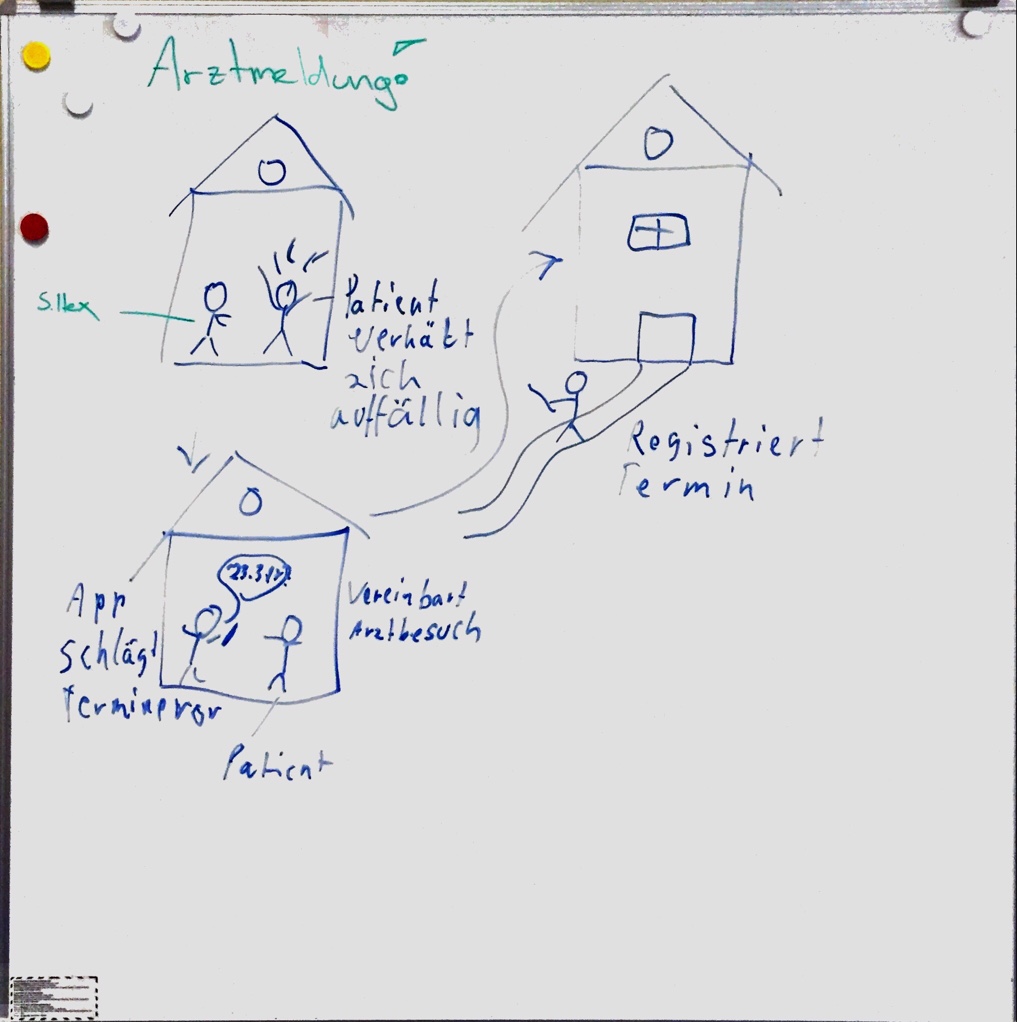 Arztmeldung
Patient
verhält
sich
auffällig
Registriert
Termin
App
schlägt
Termine vor
Vereinbart
Arztbesuch
Patient